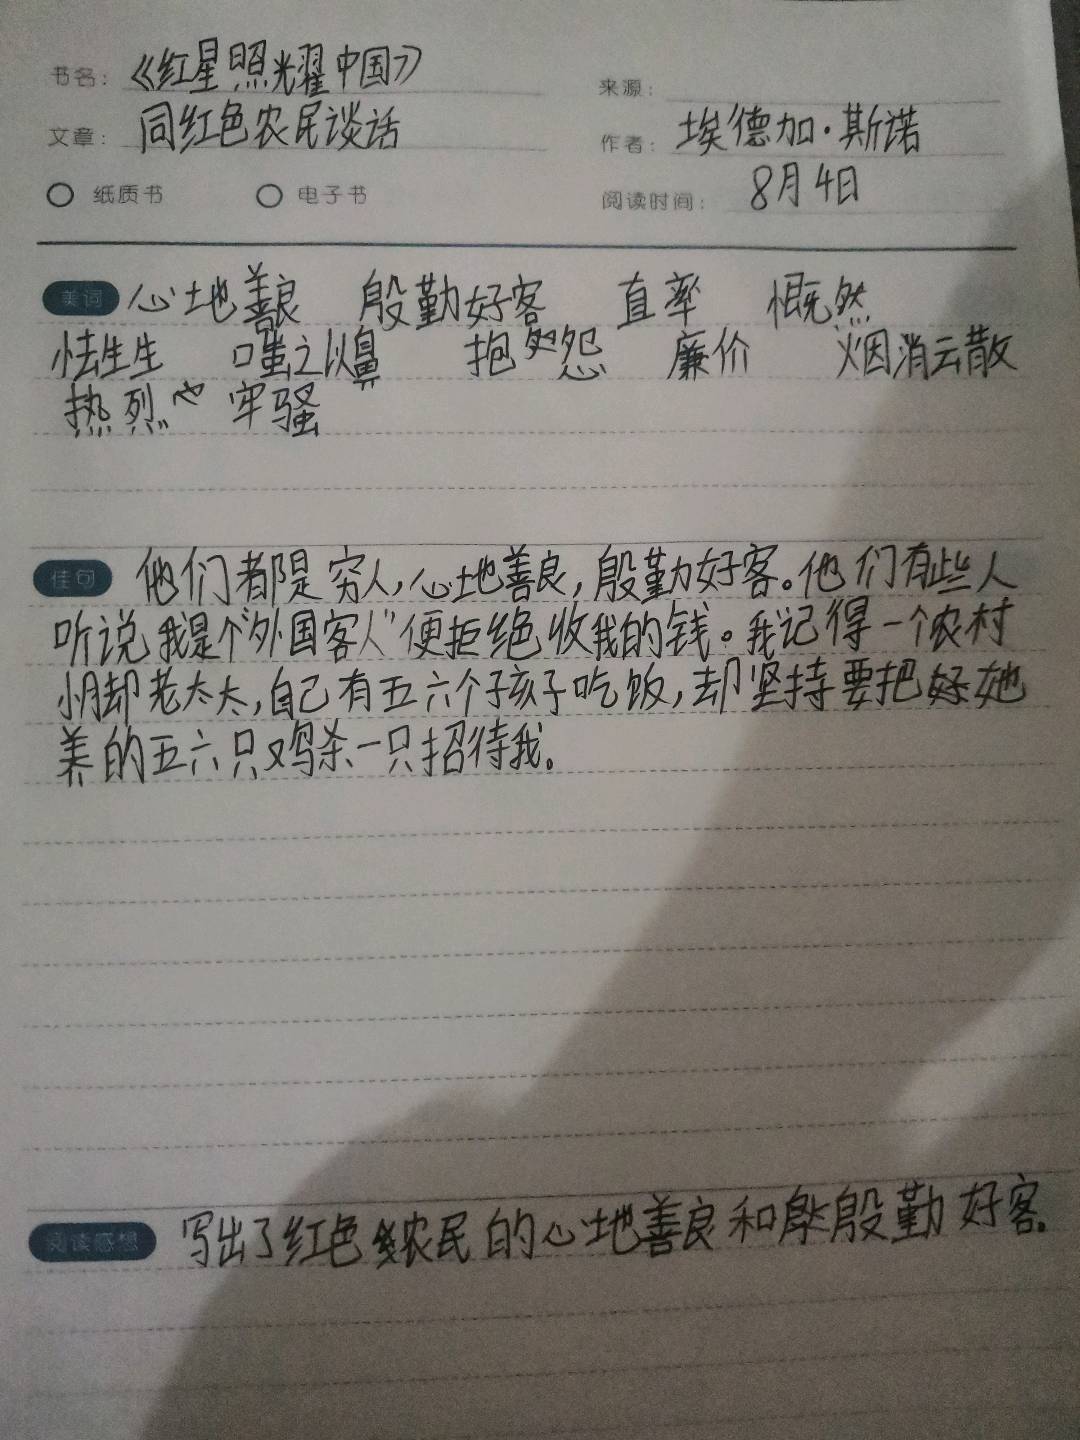 书名：《红星照耀中国》
来源：
文章：同红色农民谈话
作者：埃德加·斯诺
纸质书 电子书
阅读时间：8月4日
美词 心地善良 殷勤好客 直率 慨然
怯生生 嗤之以鼻 抱怨 廉价 烟消云散
热烈 牢骚
佳句 他们都是穷人，心地善良，殷勤好客。他们有些人
听说我是个“外国客人”便拒绝收我的钱。我记得一个农村
小脚老太太，自己有五六个孩子吃饭，却坚持要把好她
养的五六只鸡杀一只招待我。
阅读感想 写出了红色农民的心地善良和殷勤好客。